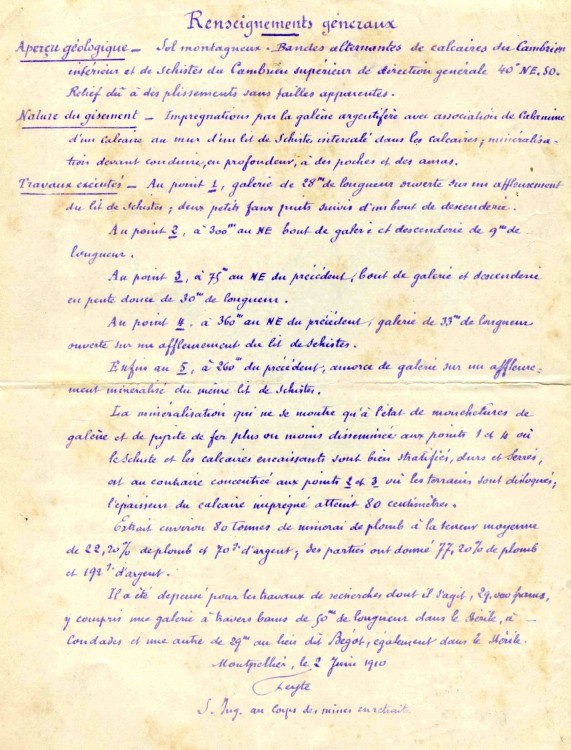 Renseignements généraux
Aperçu géologique — Sol montagneux. Bandes alternantes de calcaires du Cambrien
inférieur et de Schistes du Cambrien supérieur de direction générale 40° NE. SO.
Relief dû à des plissements sans failles apparentes.
Nature du gisement — Impregnations par la galène argentifère avec association de Calamine
d'un calcaire au mur d'un lit de Schiste intercalé dans les calcaires; minéralisa-
tion devant conduire, en profondeur, à des poches et des amas.
Travaux exécutés — Au point 1, galerie de 28m de longueur ouverte sur un affleurement
du lit de Schistes; deux petits faux puits suivis d'un bout de descenderie.
Au point 2, à 300m au NE bout de galerie et descenderie de 9m de
longueur.
Au point 3, à 75m au NE du précédent, bout de galerie et descenderie
en pente douce de 30m de longueur.
Au point 4, à 360m au NE du précédent, galerie de 33m de longueur
ouverte sur un affleurement du lit de Schistes.
Enfin au 5, à 260m du précédent, amorce de galerie sur un affleure-
ment minéralisé du même lit de Schistes.
La minéralisation qui ne se montre qu'à l'état de mouchetures de
galène et de pyrite de fer plus ou moins disseminée aux points 1 et 4 où
le Schiste et les calcaires encaissants sont bien stratifiés, durs et serrés,
est au contraire concentrée aux points 2 et 3 où les terrains sont disloqués;
l'épaisseur du calcaire imprégné atteint 80 centimètres.
Extrait environ 80 tonnes de minerai de plomb à la teneur moyenne
de 22,20% de plomb et 70g d'argent; des parties ont donné 77,20% de plomb
et 192g d'argent.
Il a été depensé pour les travaux de recherches dont il s'agit, 29,000 francs,
y compris une galerie à travers bancs de 50m de longueur dans le Stérile, à
Condades et une autre de 29m au lieu dit Bégot, également dans le Stérile.
Montpellier, le 2 Juin 1910
S. Ing. au Corps des mines en retraite